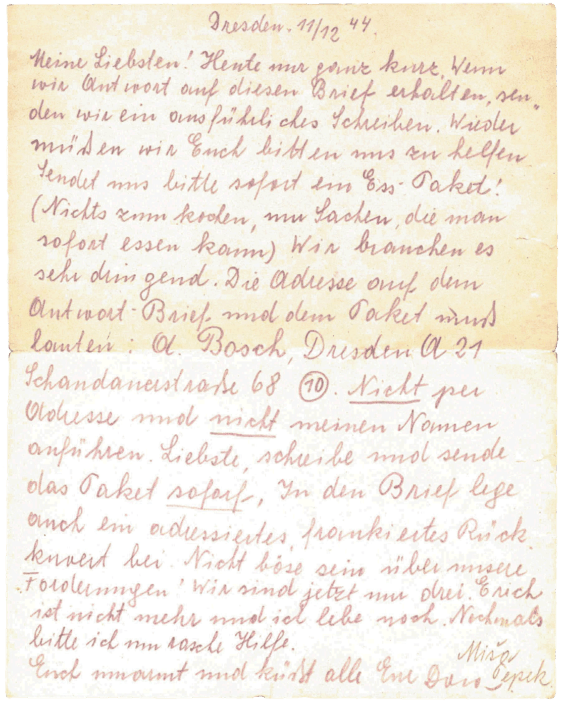 Dresden. 11/12 44.
Meine Liebsten! Heute nur ganz kurz. Wenn
wir Antwort auf diesen Brief erhalten, sen-
den wir ein ausführliches Schreiben. Wieder
müßen wir Euch bitten uns zu helfen
Sendet uns bitte sofort ein Ess-Paket!
(Nichts zum kochen, nur Sachen, die man
sofort essen kann) Wir brauchen es
sehr dringend. Die Adresse auf dem
Antwort-Brief und dem Paket muß
lauten: A. Bosch, Dresden A 21
Schandauerstraße 68 (10). Nicht per
Adresse und nicht meinen Namen
anführen. Liebste, schreibe und sende
das Paket sofort, In den Brief lege
auch ein adressiertes, frankiertes Rück
kuvert bei. Nicht böse sein über unsere
Forderungen! Wir sind jetzt nur drei. Erich
ist nicht mehr und ich lebe noch. Nochmals
bitte ich um rasche Hilfe.
Euch umarmt und küßt alle Eure
Miša
Pepek